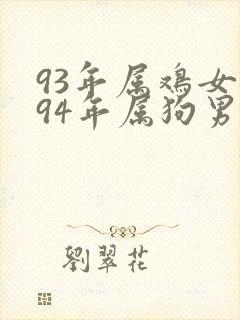 93年属鸡女
94年属狗男
劉翠花